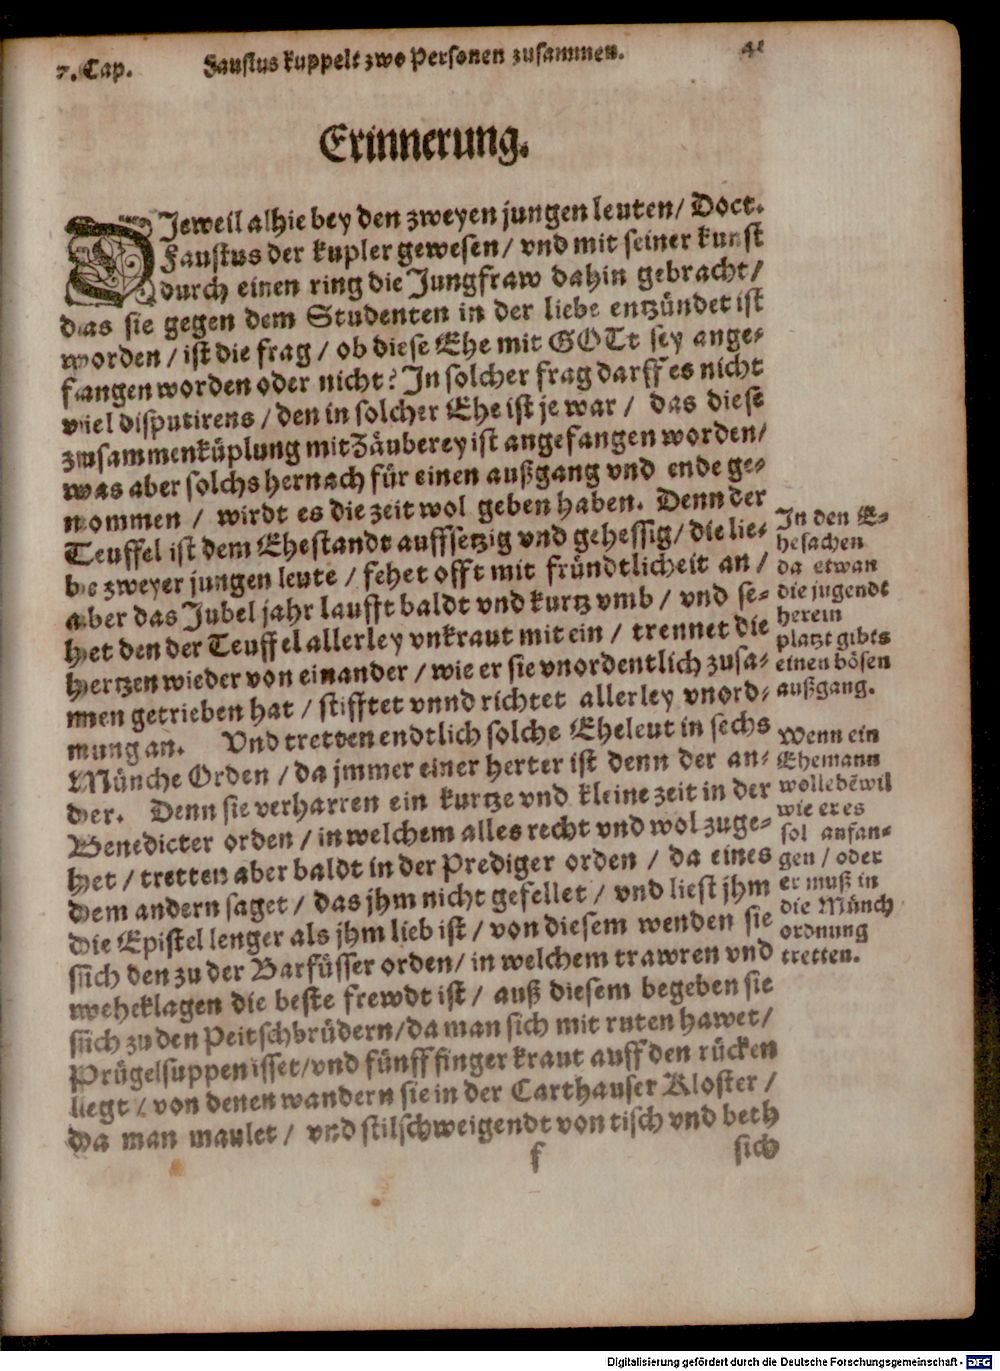 7. Cap. Faustus kuppelt zwo Personen zusammen. 41
Erinnerung.
DJeweil alhie bey den zweyen jungen leuten/ Doct.
Faustus der kupler gewesen/ vnd mit seiner kunst
durch einen ring die Jungfraw dahin gebracht/
das sie gegen dem Studenten in der liebe entzündet ist
worden / ist die frag / ob diese Ehe mit GOTt sey ange-
fangen worden oder nicht? In solcher frag darff es nicht
viel disputirens / den in solcher Ehe ist je war / das diese
zusammenküplung mit Zäuberey ist angefangen worden/
was aber solchs hernach für einen außgang vnd ende ge-
nommen / wirdt es die zeit wol geben haben. Denn der
Teuffel ist dem Ehestandt auffsetzig vnd gehessig/ die lie-
be zweyer jungen leute / fehet offt mit fründtlicheit an /
aber das Jubel jahr laufft baldt vnd kurtz vmb / vnd se-
het den der Teuffel allerley vnkraut mit ein / trennet die
hertzen wieder von einander / wie er sie vnordentlich zusa-
men getrieben hat / stifftet vnnd richtet allerley vnord-
nung an. Vnd tretten endtlich solche Eheleut in sechs
Münche Orden / da jmmer einer herter ist denn der an-
der. Denn sie verharren ein kurtze vnd kleine zeit in der
Benedicter orden / in welchem alles recht vnd wol zuge-
het / tretten aber baldt in der Prediger orden / da eines
dem andern saget / das jhm nicht gefellet / vnd liest jhm
die Epistel lenger als jhm lieb ist / von diesem wenden sie
sich den zu der Barfüsser orden/ in welchem trawren vnd
weheklagen die beste frewdt ist / auß diesem begeben sie
sich zu den Peitschbrüdern/da man sich mit ruten hawet/
Prügelsuppen isset/vnd fünff finger kraut auff den rücken
liegt / von denen wandern sie in der Carthauser Kloster /
da man maulet / vnd stilschweigendt von tisch vnd beth
f sich
In den E-
hesachen
da etwan
die jugendt
herein
platzt gibts
einen bösen
außgang.
Wenn ein
Ehemann
wolle dẽ wil
wie er es
sol anfan-
gen / oder
er muß in
die Münch
ordnung
tretten.
Digitalisierung gefördert durch die Deutsche Forschungsgemeinschaft - DFG